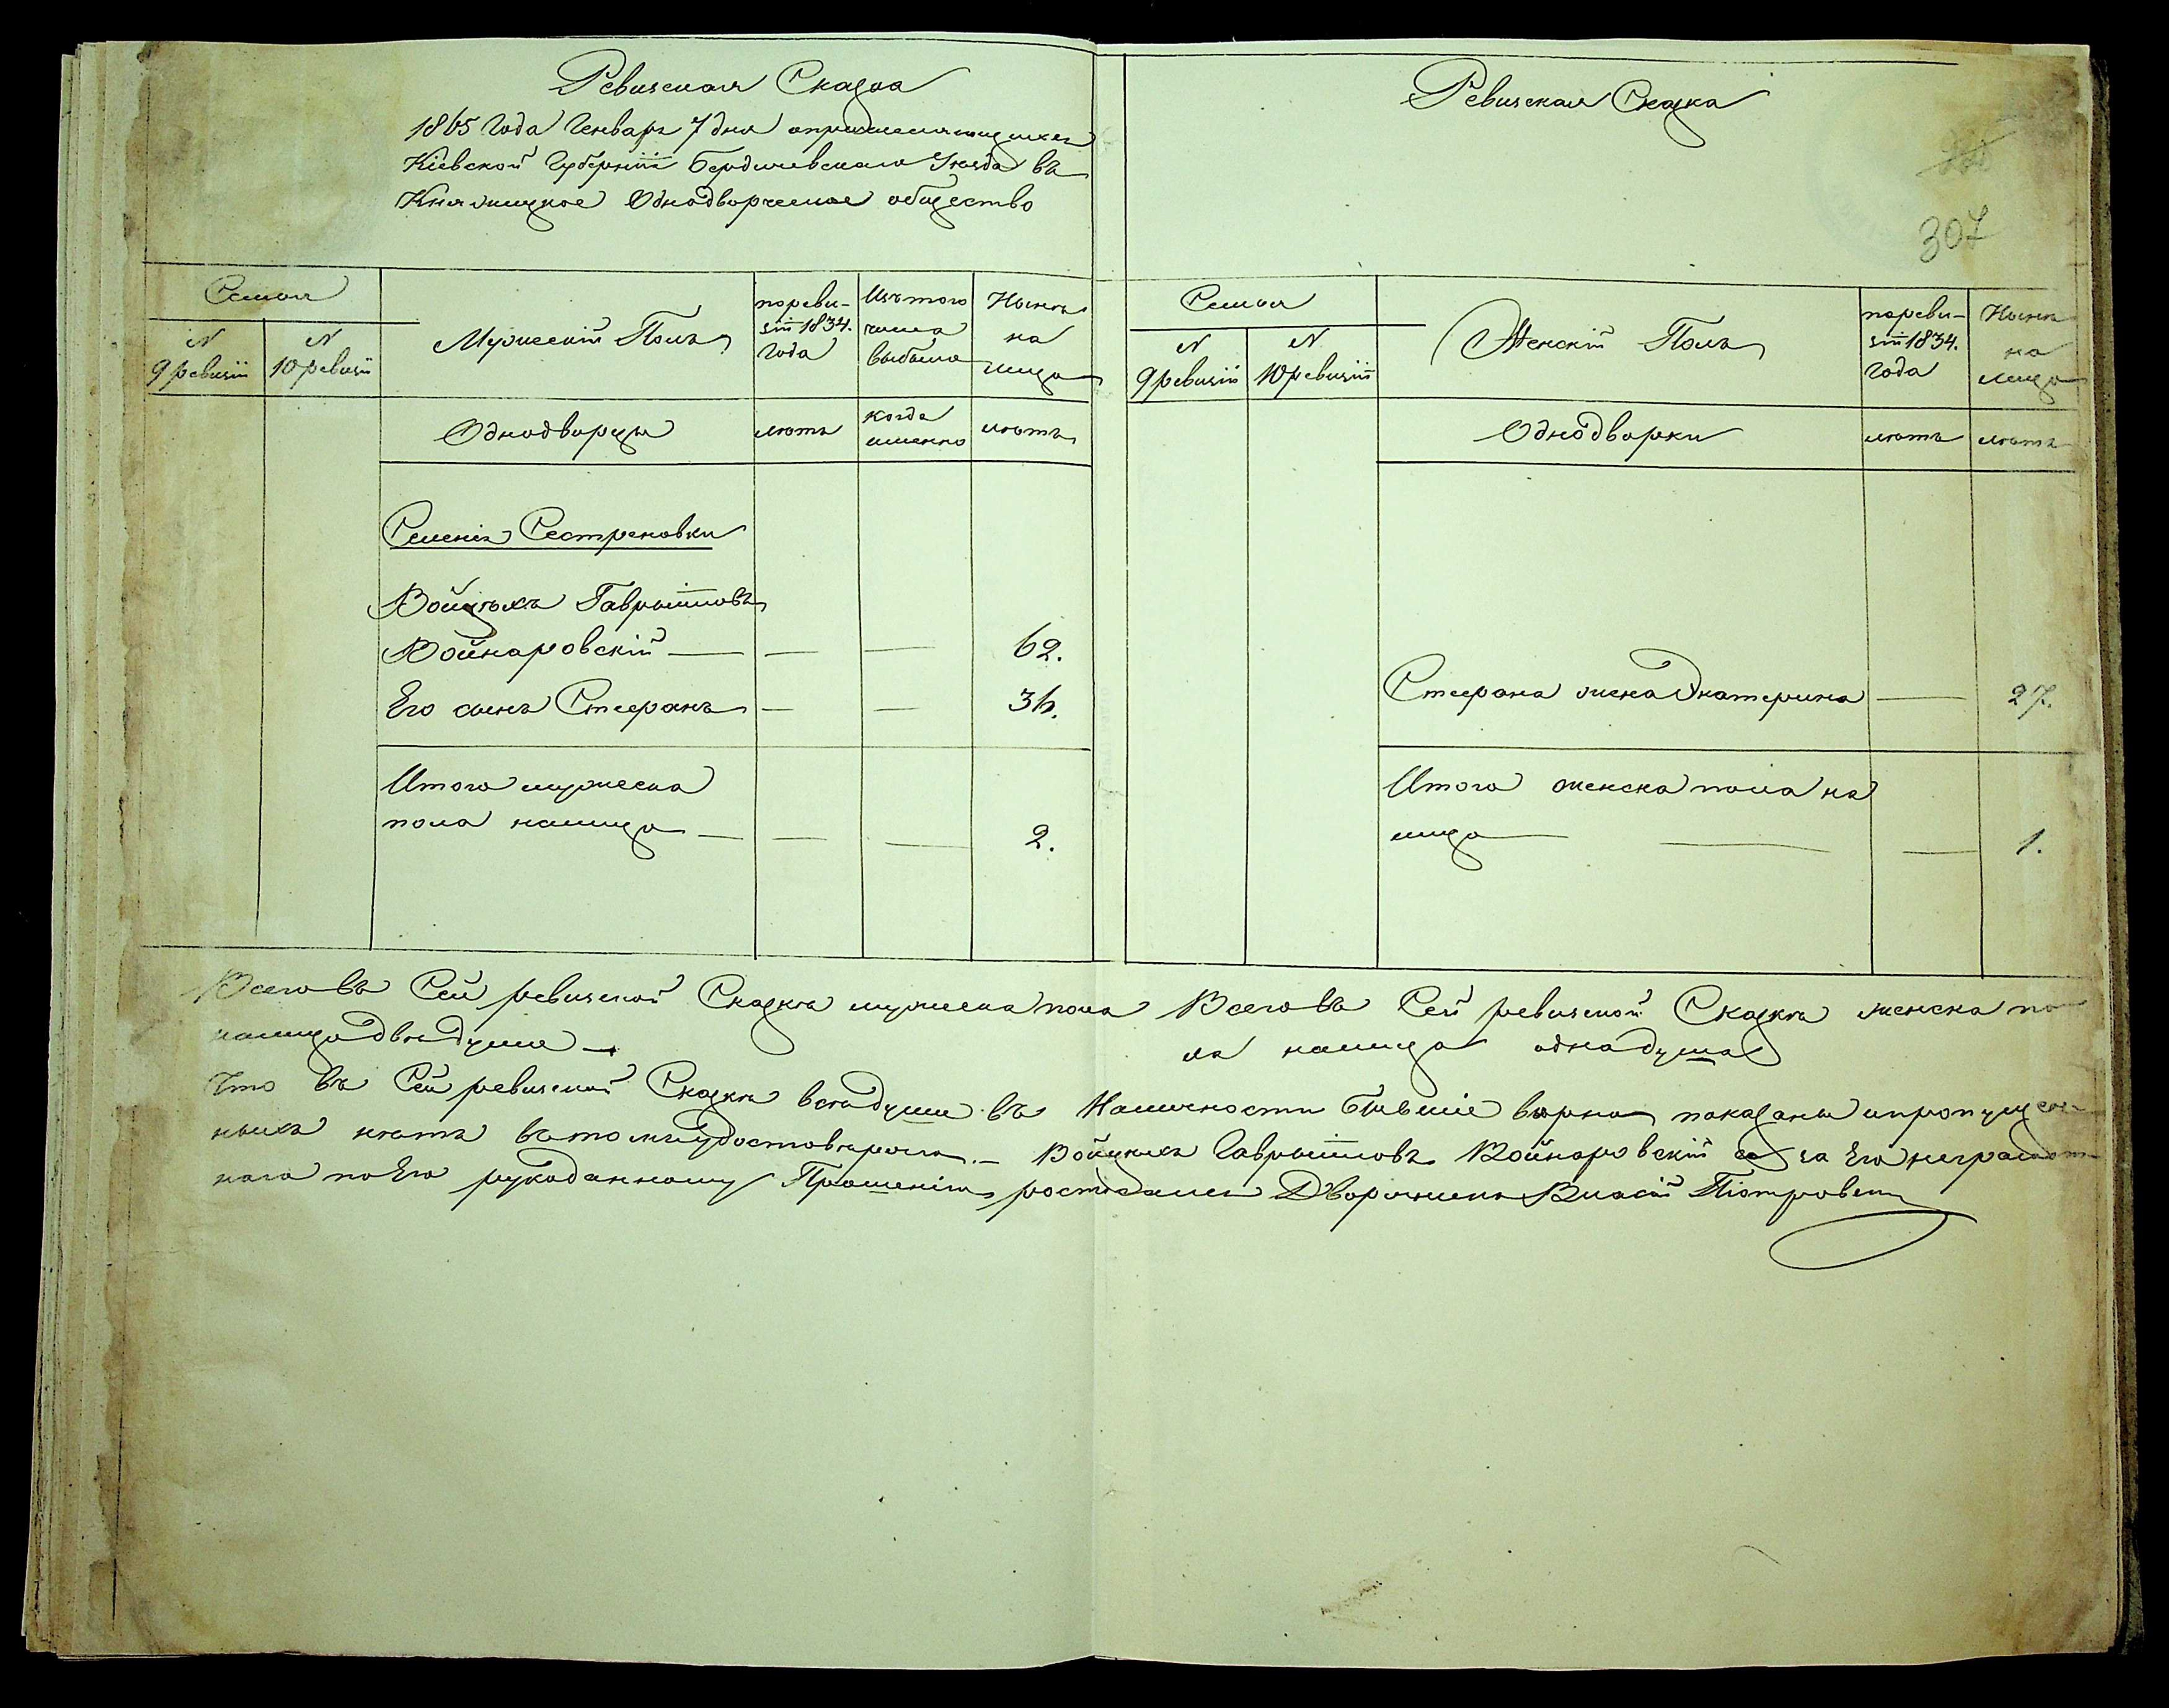 Ревизская Сказка
1865 Года Генваря 7 дня о причисляющихся
Кіевской Губерніи Бердичевскаго Уезда въ
Княжицкое Однодворческое общество
Семьи
N 9 ревизіи
N 10 ревизіи
Мужескій Полъ
по ревизіи 1834. года
Изъ того числа выбыло
Ныне на лицо
Однодворцы
летъ
когда именно
летъ
Селенія Сестреновки
Войцехъ Гаврыиловъ
Войнаровскій — — — 62.
Его сынъ Стефанъ — — 36.
Итого мужеска
пола налицо — — — 2.
Ревизская Сказка
307
Семьи
N 9 ревизіи
N 10 ревизіи
Женскій Полъ
по ревизіи 1834. года
Ныне на лицо
Однодворки
летъ
летъ
Стефана жена Екатерина — 27.
Итого женска пола на
лицо — — — 1.
Всего въ Сей ревизской Сказке мужеска пола
налицо две души —
Всего въ Сей ревизской Сказке женска по
ла налицо одна душа
Что въ Сей ревизской Сказке все души въ Наличности Бывшіе верно показаны и пропущен-
ныхъ нетъ въ томъ удостоверяю. — Войцехъ Гаврыиловъ Войнаровскій а за Его неграмот
наго по Его рукоданному Прошенію росписался Дворянинъ Власій Піотровскій